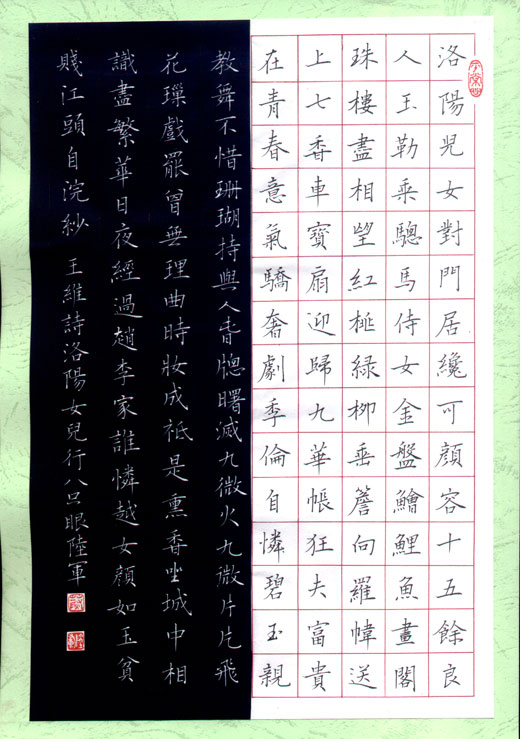 洛陽兒女對門居纔可顏容十五餘良
人玉勒乘驄馬侍女金盤鱠鯉魚畫閣
珠樓盡相望紅桃綠柳垂簷向羅幃送
上七香車寶扇迎歸九華帳狂夫富貴
在青春意氣驕奢劇季倫自憐碧玉親
教舞不惜珊瑚持與人春牕曙滅九微火九微片片飛
花璅戲罷曾無理曲時妝成祗是熏香坐城中相
識盡繁華日夜經過趙李家誰憐越女顏如玉貧
賤江頭自浣紗 王維詩洛陽女兒行八只眼陸軍